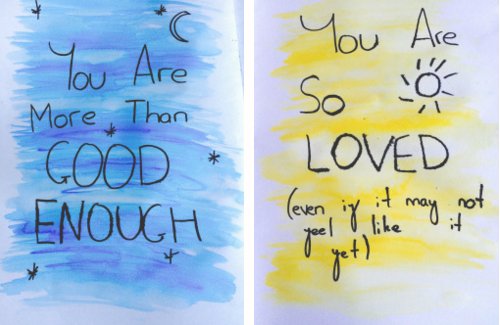 You Are
More Than
GOOD
ENOUGH
You Are
So
LOVED
(even if it may not
feel like it
yet)